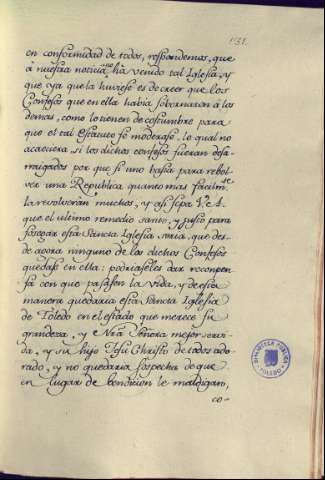 131.
en conformidad de todos, respondemos, que
à nuestra noticia no hà venido tal Iglesia, y
que ya que la huviese es de creer que los
Confesos que en ella había sobornaron á los
demas, como lo tienen de costumbre para
que el tal Estatuto se moderase, lo qual no
acaeciera si los dichos confesos fueran desa-
rraigados por que si uno basta para rebol-
ver una Republica quanto mas facilm.te
la revolveràn muchos, y así sepa V.e A.
que el ultimo remedio santo, y justo para
sosegar esta Sancta Iglesia seria, que des-
de agora ninguno de los dichos Confesos
quedase en ella: podriaseles dar recompen
sa con que pasasen la vida, y de esta
manera quedaria esta Sancta Iglesia
de Toledo en el estado que merece su
grandeza, y Nrã Señora mejor servi-
da, y su hijo Jesu Christo de todos ado-
rado, y no quedaria sospecha de que
en lugar de bendicion le maldigan,
co-
BIBLIOTECA PUBLICA
TOLEDO